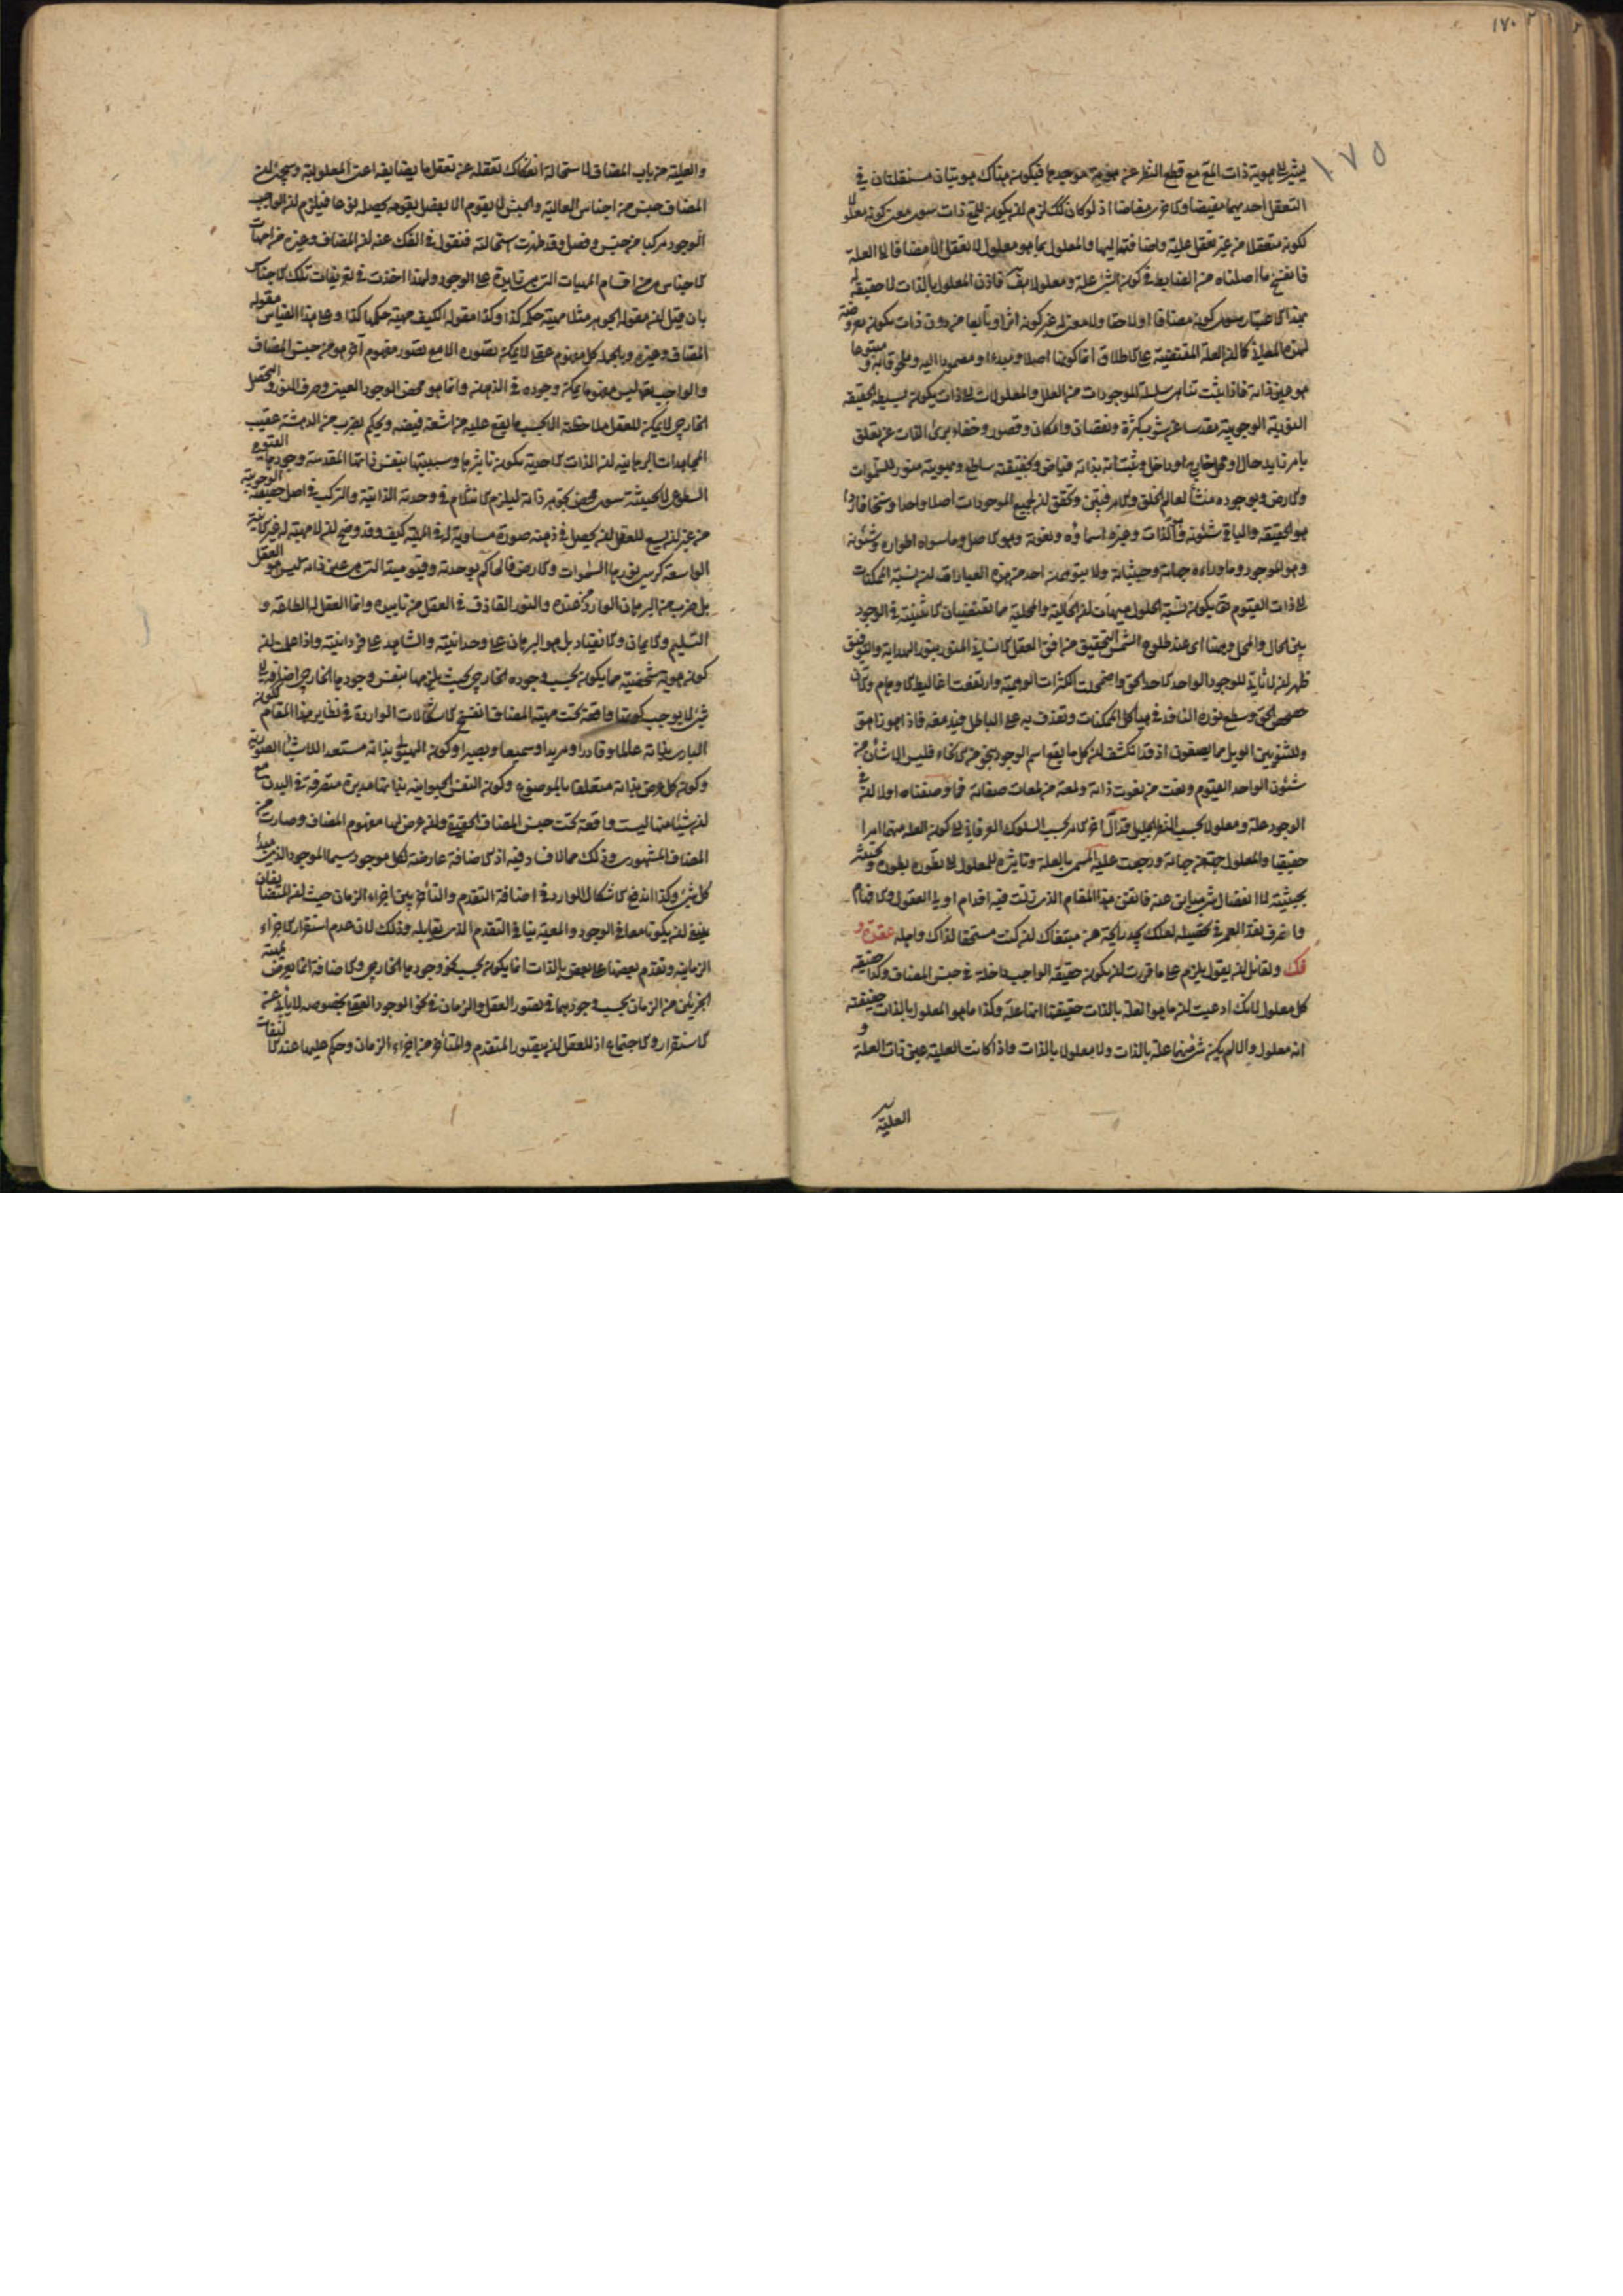 ١٧٠
١٧٥
يشير الى هوية ذات المع مع قطع النظر عن هوية موجدها فيكون هناك هويتان مستقلتان في
التعقل احديهما مفيضا والاخرى مفاضا اذ لو كان كذلك لزم ان يكون للمع ذات سوى معنى كونه معلولا
لكونه متعقلا من غير تعقل علته واضافته اليها والمعلول بما هو معلول لا يعقل الا مضافا الى العلة
فانفسخ ما اصلناه من الضابط في كون الشئ علة ومعلولا هف فاذن المعلول بالذات لا حقيقة له
بهذا الاعتبار سوى كونه مضافا ولاحقا ولا معنى له غير كونه اثرا وتابعا من دون ذات يكون معروضة
لهذه المعاني كما ان العلة المقتضية على الاطلاق انما كونها اصلا ومبدءا ومصمودا اليه وملحوقا به ومتبوعا
هو عين ذاته فاذا ثبت تناهى سلسلة الموجودات من العلل والمعلولات الى ذات يكون بسيطة الحقيقة
النورية الوجودية مقدسا عن شوب كثرة ونقصان وامكان وقصور وخفاء برئ الذات عن تعلق
بامر زايد حال او محل خارج او داخل وثبت انه بذاته فياض وبحقيقته ساطع وبهويته منور للسموات
والارض وبوجوده منشأ لعالم الخلق والامر تبين وتحقق ان لجميع الموجودات اصلا واحدا وسنخا فاردا
هو الحقيقة والباقي شئونه وهو الذات وغيره اسماؤه ونعوته وهو الاصل وما سواه اطواره وشئونه
وهو الموجود وما وراءه جهاته وحيثياته ولا يتوهمن احد من هذه العبارات ان نسبة الممكنات
الى ذات القيوم تعالى يكون نسبة الحلول هيهات ان الحالية والمحلية مما يقتضيان الاثنينية في الوجود
بين الحال والمحل وههنا اى عند طلوع شمس التحقيق من افق العقل الانساني المتنور بنور الهداية والتوفيق
ظهر ان لا ثاني للوجود الواحد الاحد الحق واضمحلت الكثرات الوهمية وارتفعت اغاليط الاوهام والان
حصحص الحق وسطع نوره النافذ في هياكل الممكنات ويقذف به على الباطل فيدمغه فاذا هو زاهق
وللثنويين الويل مما يصفون اذ قد انكشف ان كل ما يقع اسم الوجود بنحو من الانحاء فليس الا شأن من
شئون الواحد القيوم ونعت من نعوت ذاته ولمعة من لمعات صفاته فما وصفناه اولا ان في
الوجود علة ومعلولا بحسب النظر الجليل قد آل آخر الامر بحسب السلوك العرفاني الى كون العلة منهما امرا
حقيقيا والمعلول جهة من جهاته ورجعت علية المسمى بالعلة وتاثيره للمعلول الى تطوره بطور وتحيثه
بحيثية لا انفصال شئ مباين عنه فاتقن هذا المقام الذى زلت فيه اقدام اولى العقول والافهام
واصرف نقد العمر في تحصيله لعلك تجد رائحة من مبتغاك ان كنت مستحقا لذاك واهله عقدة و
فك ولقائل ان يقول يلزم على ما قررت ان يكون حقيقة الواجب داخلة في جنس المضاف وكذا حقيقة
كل معلول لانك ادعيت ان ما هو العلة بالذات حقيقتها انها علة وكذا ما هو المعلول بالذات حقيقته
انه معلول والا لم يكن شئ منهما علة بالذات ولا معلولا بالذات واذا كانت العلية عين ذات العلة و
العلية
والعلية من باب المضاف لاستحالة انفكاك تعقله عن تعقل ما يضايفه اعنى المعلولية وسيجئ ان
المضاف جنس من اجناس العالية والجنس لا يقوم الا بفصل يقومه يحصله نوعا فيلزم ان الواجب
الوجود مركبا من جنس وفصل وقد ظهرت استحالته فنقول في الفك عنه ان المضاف وغيره من امهات
الاجناس هى من اقسام المهيات التى هى زايدة على الوجود ولهذا اخذت في تعريفات تلك الاجناس
بان قيل ان مقولة الجوهر مثلا مهية حكمه كذا وكذا مقولة الكيف مهية حكمها كذا وعلى هذا القياس مقولة
المضاف وغيره وبالجملة كل مفهوم عقلى لا يمكن تصوره الا مع تصور مفهوم آخر هو من جنس المضاف
والواجب تعالى ليس مفهوما يمكن وجوده في الذهن وانما هو محض الوجود العينى وصرف النور والتحصل
الخارجى لا يمكن للعقل ملاحظته الا بحسب ما يقع عليه من اشعة فيضه ويحكم بضرب من الدهشة عقيب
المجاهدات البرهانيه ان الذات الاحدية يكون تاثيرها وسببيتها بنفس ذاتها المقدسة وجودها القيومى
السطوعى لا بحيثية سوى محض تجوهر ذاته ليلزم الانثلام في وحدته الذاتية والتركيب في اصل حقيقته الوجوبية
من غير ان يسع للعقل ان يحصل في ذهنه صورة مساوية له في المهية كيف وقد وضح ان لا مهية له غير الانية
الواسعة كرسى نورها السموات والارض فالحاكم بوحدته وقيوميته التى هى عين ذاته ليس هو العقل
بل ضرب من البرهان الوارد من عنده والنور القاذف في العقل من تاييده وانما العقل له الطاعة و
التسليم والايمان والانقياد بل هو البرهان على وحدانيته والشاهد على فردانيته واذا علمت ان
كون هوية شخصية مما يكون بحسب وجوده الخارجى بحيث يلزمها بنفس وجودها الخارجى اضافة الى
شئ لا يوجب كونها واقعة تحت مهية المضاف انفسخ الاشكالات الواردة في نظاير هذا المقام ككون
البارى بذاته عالما وقادرا ومريدا وسميعا وبصيرا وكون الهيولى بذاته مستعدا للاشياء الصورية
وكون كل عرض بذاته متعلقا بالموضوع وكون النفس الحيوانية بذاتها مدبرة متصرفة في البدن مع
ان شيئا منها ليست واقعة تحت جنس المضاف الحقيقى وان عرض لها مفهوم المضاف وصارت من
المضاف المشهورى وذلك مما لا فساد فيه اذ الاضافة عارضة لكل موجود سيما الموجود الذى هو مبدأ
كل شئ وكذا اندفع الاشكال الوارد في اضافة التقدم والتأخر بين اجزاء الزمان حيث ان المتضايفان
ينبغى ان يكونا معا في الوجود والمعية ينافى التقدم الذى يقابله وذلك لان عدم استقرار الاجزاء
الزمانية وتقدم بعضها على بعض بالذات انما يكون بحسب نحو وجودها الخارجى والاضافة انما يعرض لمهية
الجزئين من الزمان بحسب وجودهما في تصور العقل والزمان في نحو الوجود العقلى بخصوصه لا يأبى عنه
الاستقرار والاجتماع اذ للعقل ان يتصور المتقدم والمتأخر من اجزاء الزمان وحكم عليها عند الالتفات